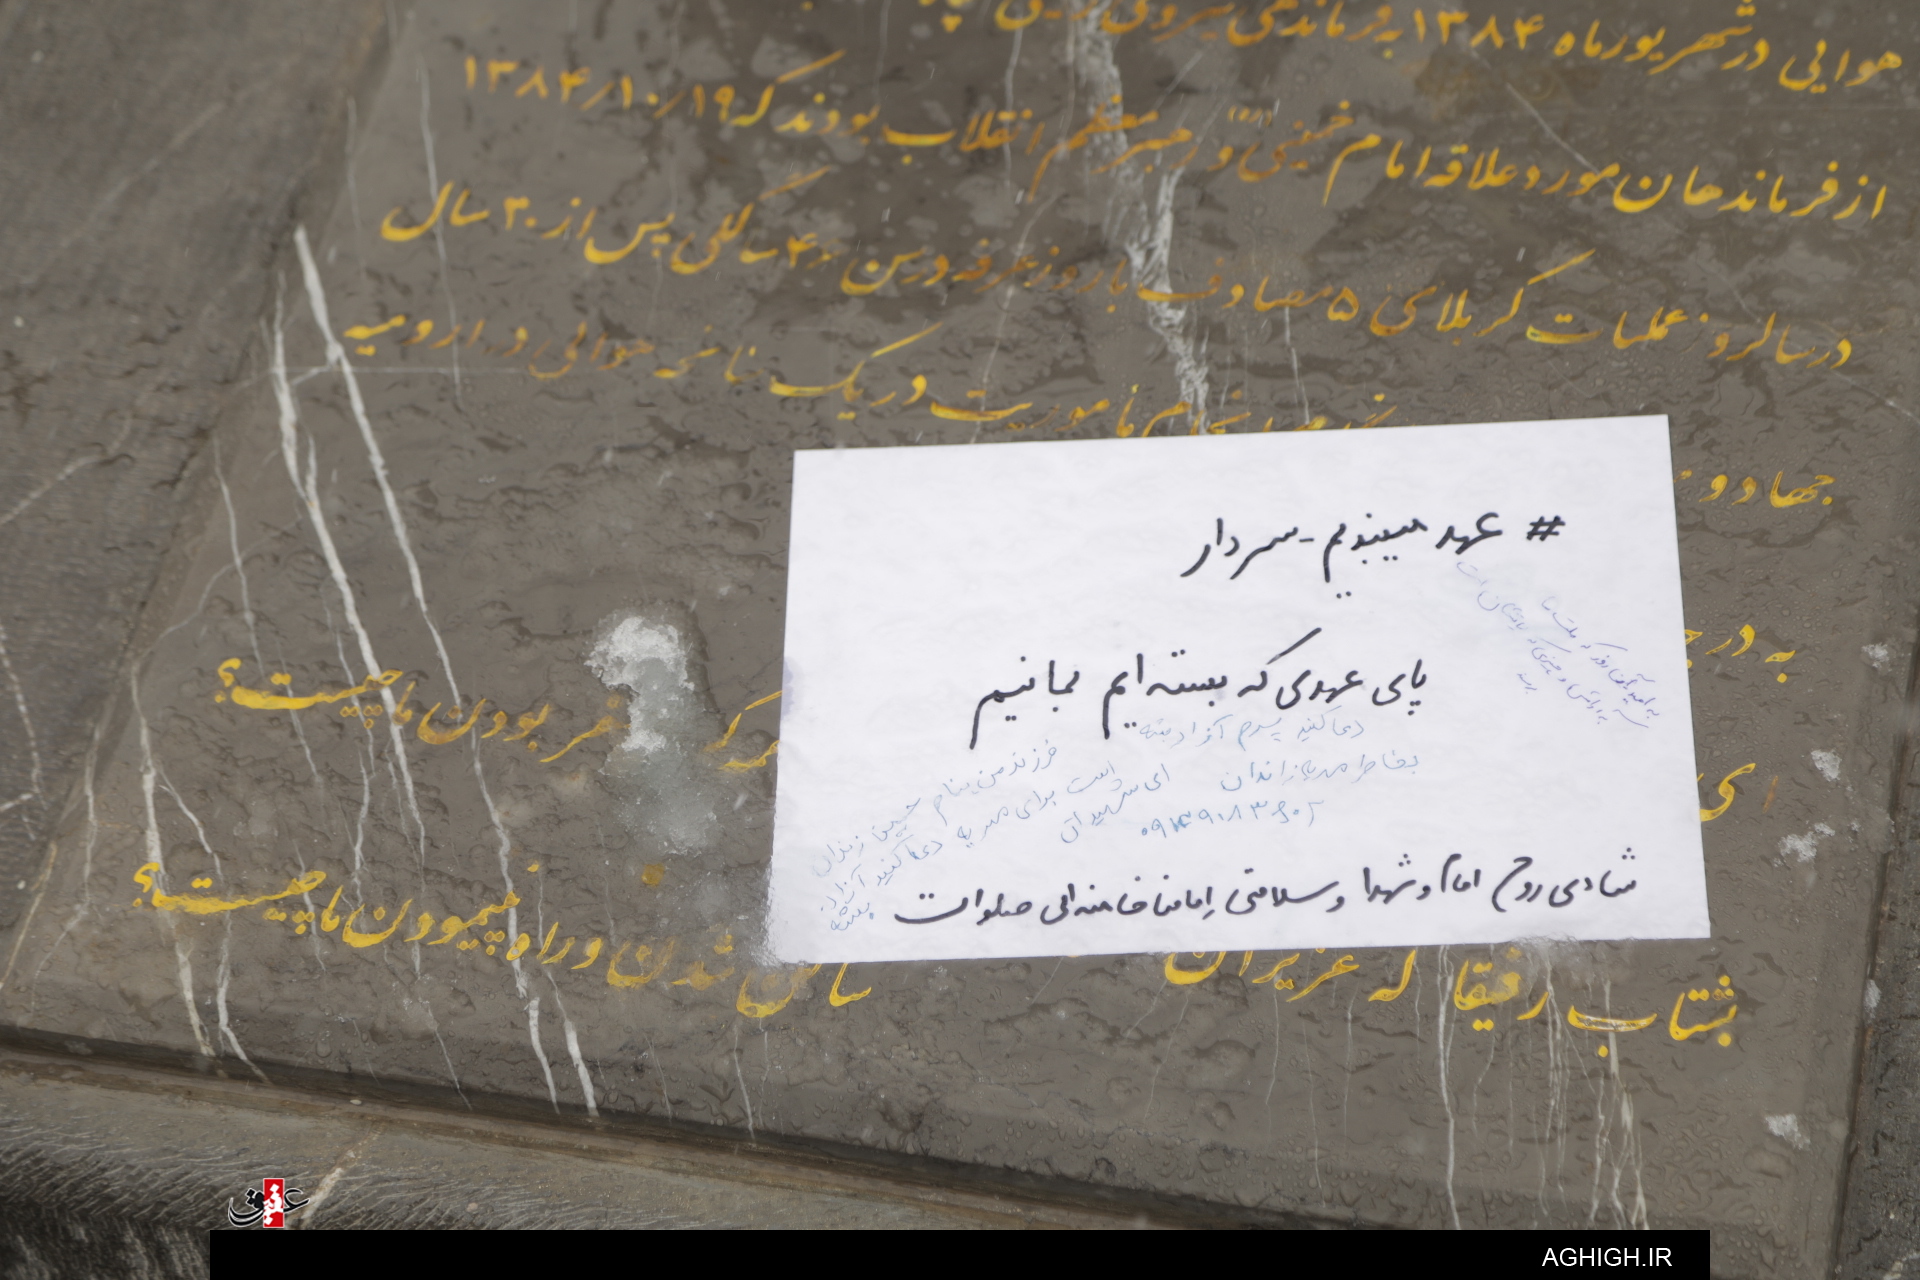 هوایی در شهریورماه ۱۳۸۴ به فرماندهی نیروی زمینی
از فرماندهان مورد علاقه امام خمینی (ره) و رهبر معظم انقلاب بودند که ۱۳۸۴/۱۰/۱۹
در سالروز عملیات کربلای ۵ مصادف با روز عرفه در سن ۴۶ سالگی پس از ۳۰ سال
جهاد و در انجام مأموریت در یک سانحه هوایی در ارومیه
به در
ای سفر بودن ما چیست؟
بشتاب رفیقا که عزیزان ساکن شدن و راه نپیمودن ما چیست؟
# عهد میبندیم - سردار
پای عهدی که بسته ایم بمانیم
دعا کنید پسرم آزاد بشه
بخاطر مهریه زندان
ای شهیدان
۰۹۱۴۹۰۸۳۶۰۲
فرزند من بنام حسین زندان
است برای مهریه دعا کنید آزاد
بشه
شادی روح امام و شهدا و سلامتی امامنا خامنه ای صلوات
عقیق
AGHIGH.IR